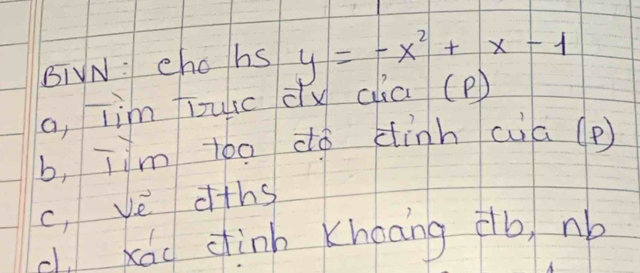 BTVN: cho hs y = -x² + x - 1
a, Tìm Trục đx của (P)
b, Tìm tọa độ đỉnh của (P)
c, Vẽ đths
d, xác định khoảng đb, nb